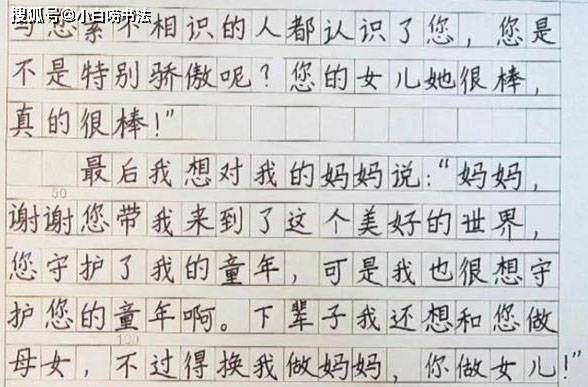 搜狐号@小白唠书法
与您素不相识的人都认识了您，您是
不是特别骄傲呢？您的女儿她很棒，
真的很棒！”
最后我想对我的妈妈说：“妈妈，
50
谢谢您带我来到了这个美好的世界，
您守护了我的童年，可是我也很想守
护您的童年啊。下辈子我还想和您做
120
母女，不过得换我做妈妈，你做女儿！”